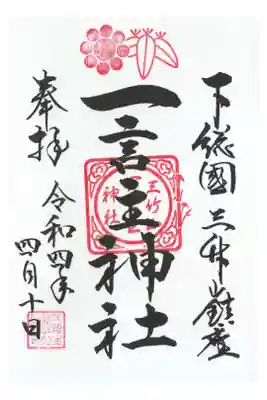 下総國 三竹山鎮座
一言主神社
三竹
神社
奉拝
令和四年
四月十日